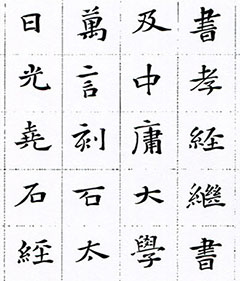 書孝経繼書
及中庸大學
萬言刻石太
日光堯石經